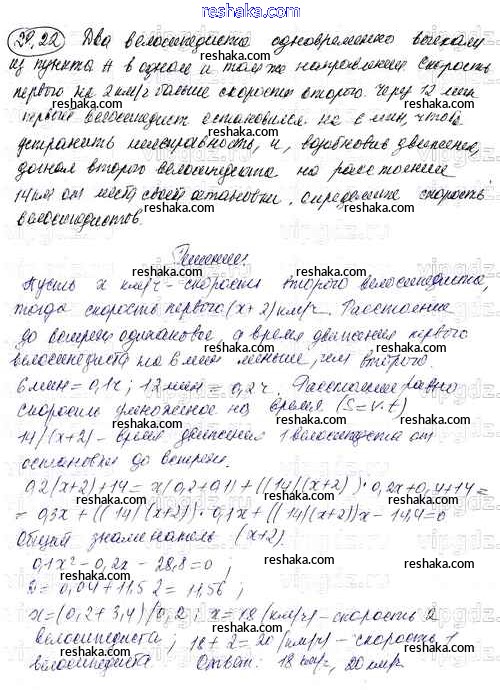 reshaka.ru
29.22 Два велосипедиста одновременно выехали
из пункта А в одном и том же направлении. Скорость
первого на 2 км/ч больше скорости второго. Через 12 мин
первый велосипедист остановился на 6 мин, чтобы
устранить неисправность, и, возобновив движение,
догнал второго велосипедиста на расстоянии
14 км от места своей остановки. Определите скорость
велосипедистов.
Решение:
Пусть х км/ч - скорость второго велосипедиста,
тогда скорость первого (х+2) км/ч. Расстояние
до встречи одинаковое, а время движения первого
велосипедиста на 6 мин меньше, чем второго
6 мин = 0,1 ч; 12 мин = 0,2 ч. Расстояние равно
скорости умноженное на время (S=v.t)
14/(х+2) - время движения 1 велосипедиста от
остановки до встречи.
0,2(х+2)+14=х(0,2+0,1)+((14/(х+2))·0,2х+0,4+14=
=0,3х+((14/(х+2))·0,1х+((14/(х+2))х-14,4=0
Общий знаменатель (х+2).
0,1х²-0,2х-28,8=0;
D=0,04+11,52=11,56;
х=(0,2+3,4)/0,2; х=18 (км/ч) - скорость 2
велосипедиста; 18+2=20 (км/ч) - скорость 1
велосипедиста. Ответ: 18 км/ч, 20 км/ч.